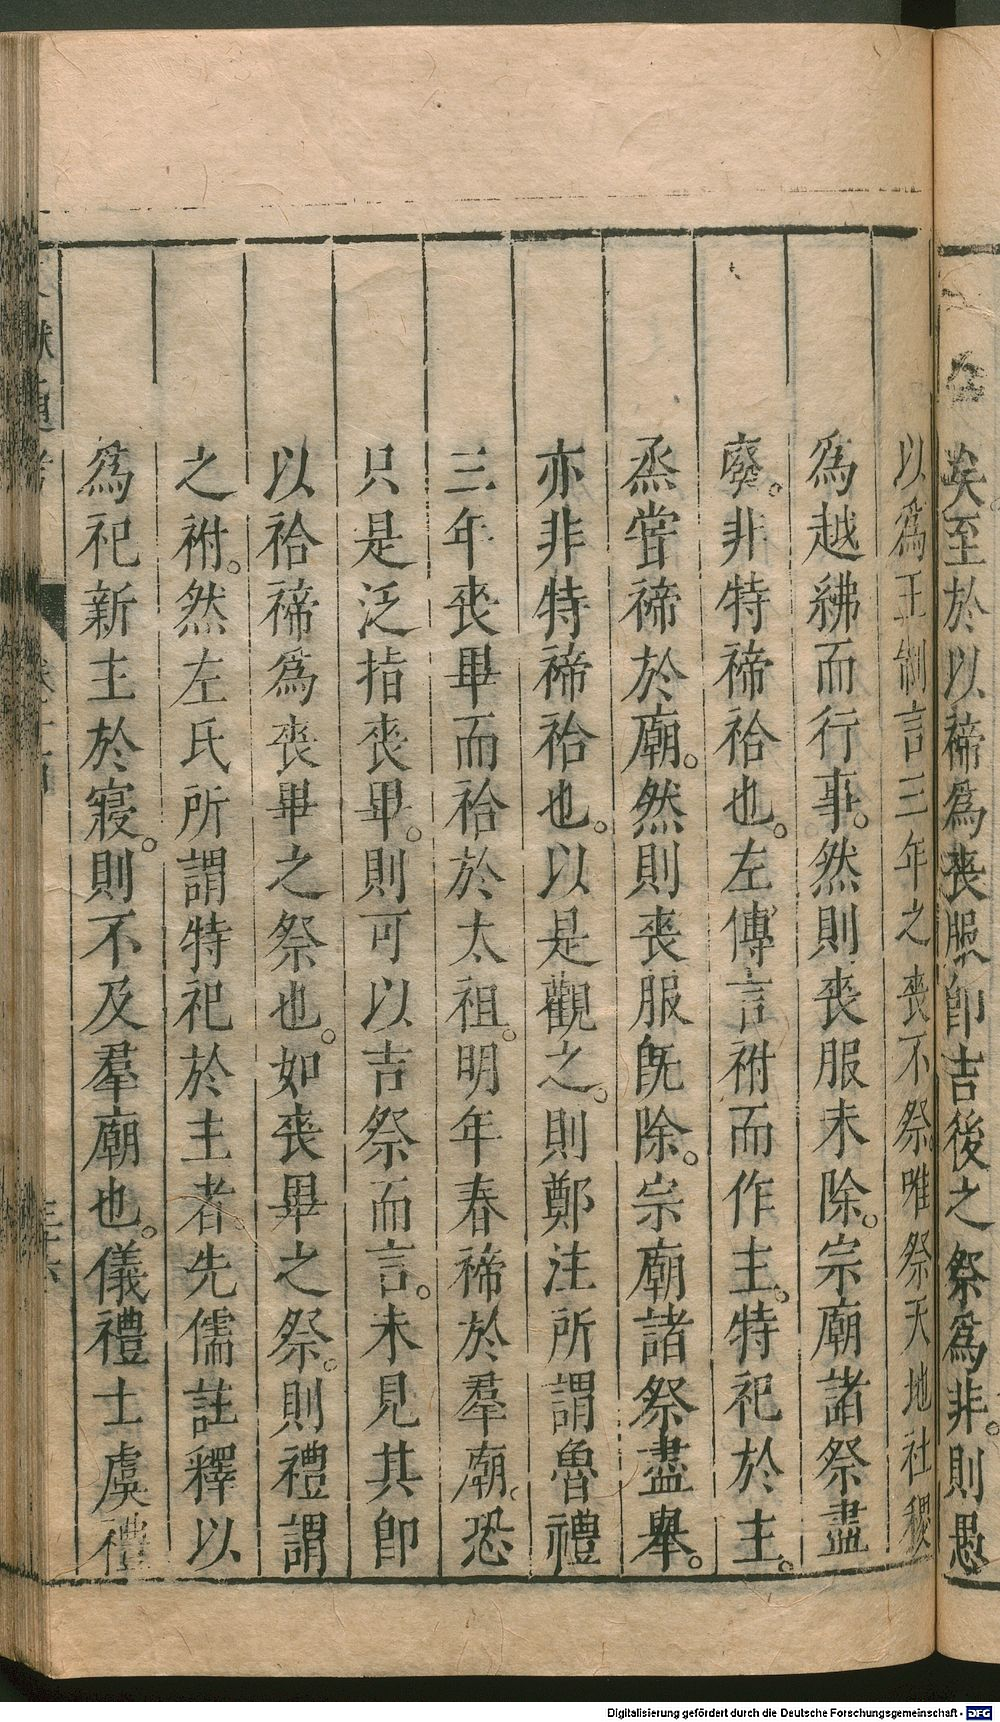 矣至於以禘爲喪服卽吉後之祭爲非。則愚
以爲王制言三年之喪不祭。唯祭天地社稷
爲越紼而行事。然則喪服未除。宗廟諸祭盡
廢。非特禘祫也。左傳言祔而作主。特祀於主。
烝嘗禘於廟。然則喪服旣除。宗廟諸祭盡舉。
亦非特禘祫也。以是觀之。則鄭注所謂魯禮
三年喪畢而祫於太祖。明年春禘於羣廟。恐
只是泛指喪畢。則可以吉祭而言。未見其卽
以祫禘爲喪畢之祭也。如喪畢之祭。則禮謂
之祔。然左氏所謂特祀於主者先儒註釋以
爲祀新主於寢。則不及羣廟也。儀禮士虞禮
Digitalisierung gefördert durch die Deutsche Forschungsgemeinschaft - DFG